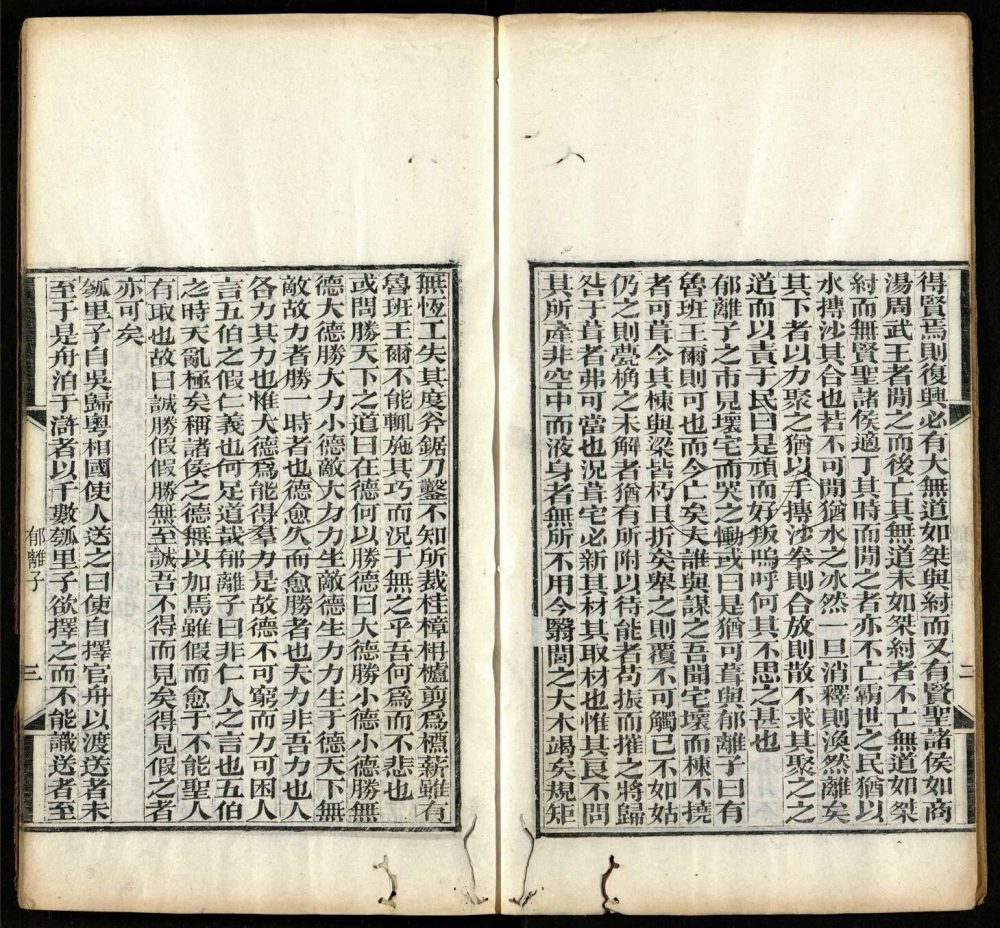 得賢焉則復興必有大無道如桀與紂而又有賢聖諸侯如商
湯周武王者閒之而後亡其無道未如桀紂者不亡無道如桀
紂而無賢聖諸侯適丁其時而閒之者亦不亡霸世之民猶以
水摶沙其合也若不可閒猶水之冰然一旦消釋則渙然離矣
其下者以力聚之猶以手摶沙拳則合放則散不求其聚之之
道而以責于民曰是頑而好叛嗚呼何其不思之甚也
郁離子之市見壞宅而哭之慟或曰是猶可葺與郁離子曰有
魯班王爾則可也而今亡矣夫誰與謀之吾聞宅壞而棟不撓
者可葺今其棟與梁皆朽且折矣舉之則覆不可觸已不如姑
仍之則甍桷之未解者猶有所附以待能者苟振而摧之將歸
咎于葺者弗可當也況葺宅必新其材其取材也惟其良不問
其所產非空中而液身者無所不用今醫閭之大木竭矣規矩
二
無恆工失其度斧鋸刀鑿不知所裁桂樟柟櫨剪爲樵薪雖有
魯班王爾不能輒施其巧而況于無之乎吾何爲而不悲也
或問勝天下之道曰在德何以勝德曰大德勝小德小德勝無
德大德勝大力小德敵大力力生敵德生力力生于德天下無
敵故力者勝一時者也德愈久而愈勝者也夫力非吾力也人
各力其力也惟大德爲能得羣力是故德不可窮而力可困人
言五伯之假仁義也何足道哉郁離子曰非仁人之言也五伯
之時天亂極矣稱諸侯之德無以加焉雖假而愈于不能聖人
有取也故曰誠勝假假勝無至誠吾不得而見矣得見假之者
亦可矣
瓠里子自吳歸粵相國使人送之曰使自擇官舟以渡送者未
至于是舟泊于滸者以千數瓠里子欲擇之而不能識送者至
郁離子
三